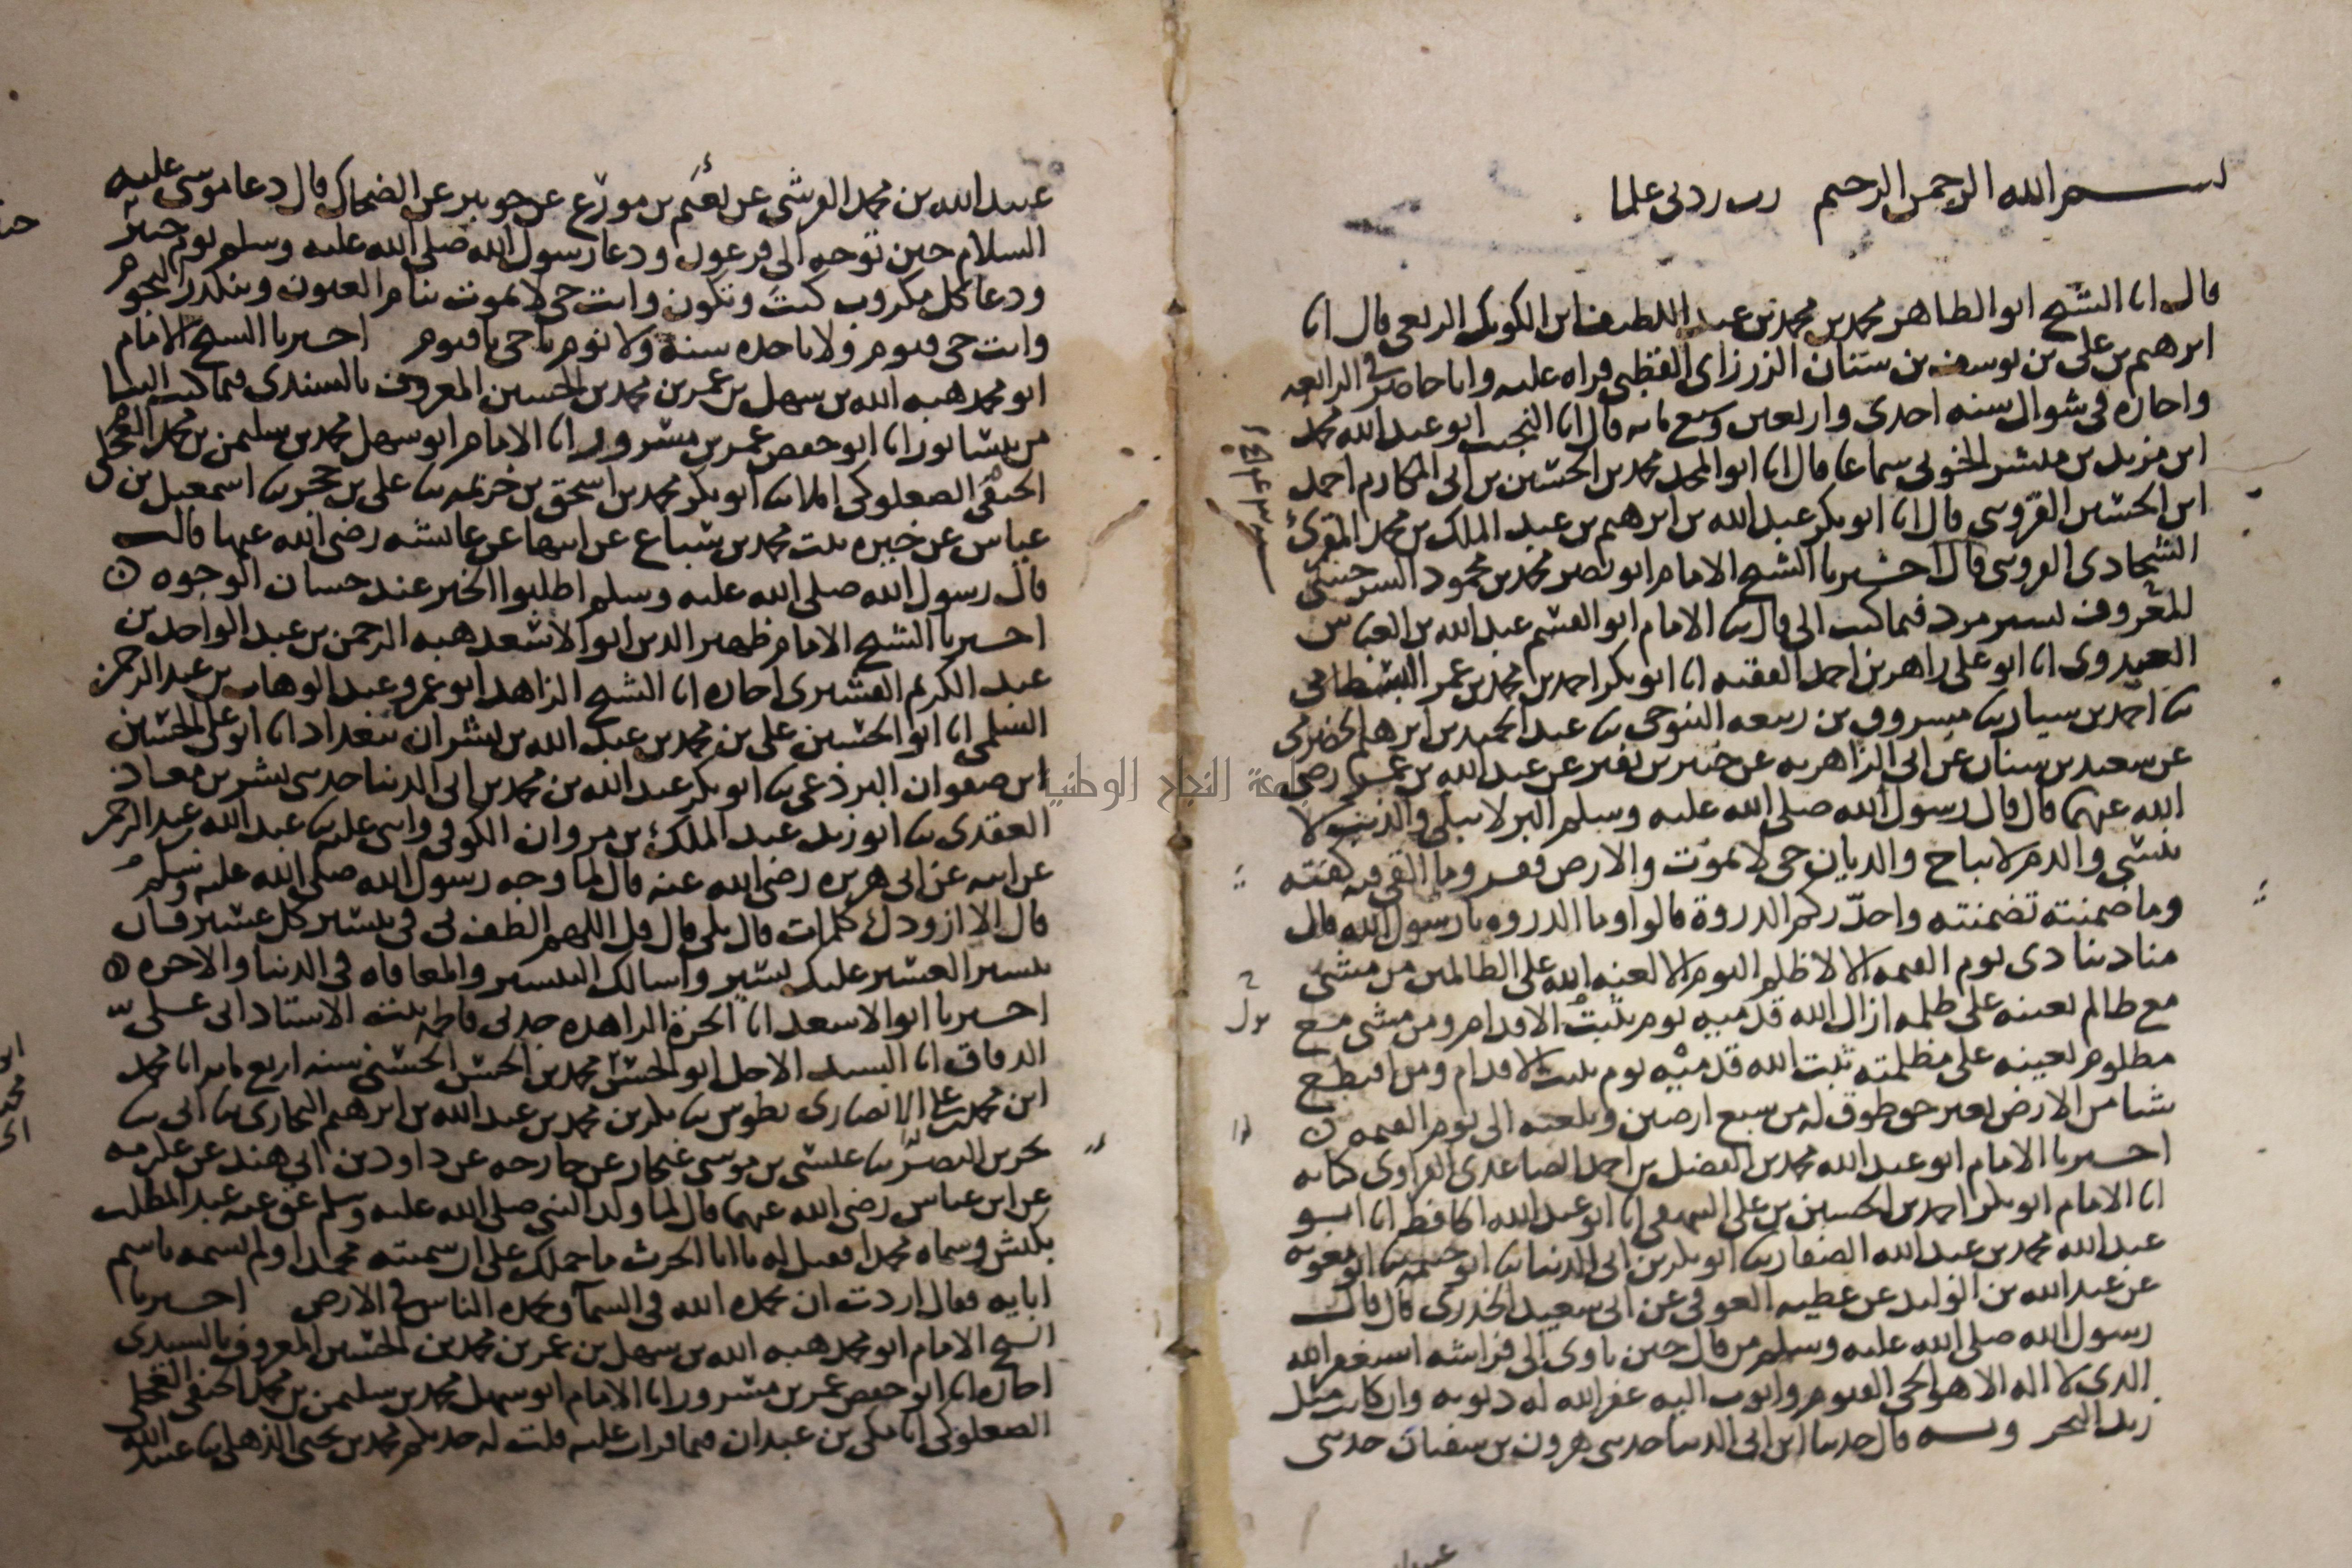 بسم الله الرحمن الرحيم رب زدني علما
قال انا الشيخ ابو الطاهر محمد بن محمد بن عبد اللطيف ابن الكويك الربعي قال انا
ابرهيم بن علي بن يوسف بن سنان الزرزاي القطبي قراه عليه وانا حاضر في الرابعه
واجازه في شوال سنه احدى واربعين وسبع مايه قال انا النجيب ابو عبد الله محمد
ابن سماعا قال انا ابو المجد محمد بن الحسين بن ابي المكارم احمد
ابن الحسين القزويني قال انا ابو بكر عبد الله بن ابرهيم بن عبد الملك بن محمد المقرئ
الشحادي القزويني قال اخبرنا الشيخ الامام ابو نصر محمد بن محمود السرخسي
المعروف فيما كتب الي قال ثنا الامام ابو القسم عبد الله بن العباس
العبدوي انا ابو علي زاهر بن احمد الفقيه انا ابو بكر احمد بن محمد بن عمر البسطامي
ثنا احمد بن سيار ثنا مسروق بن ربيعه التنوخي ثنا عبد الحميد بن ابرهيم الحضرمي
عن سعيد بن سنان عن ابي الزاهريه عن جبير بن نفير عن عبد الله بن عمر رضي
الله عنهما قال قال رسول الله صلى الله عليه وسلم البر لا يبلى والذنب لا
ينسى والدم لا يباح والديان حي لا يموت والارض وما القي فيه كفته
وما ضمنته تضمنته واحذركم الدروة قالوا وما الدروه يا رسول الله قال
مناد ينادي يوم القيمه الا لا ظلم اليوم الا لعنه الله على الظالمين من مشى
مع ظالم يعينه على ظلمه ازال الله قدميه يوم تثبت الاقدام ومن مشى مع
مظلوم يعينه على مظلمته ثبت الله قدميه يوم الاقدام ومن اقتطع
شيا من الارض بغير حق طوق له من سبع ارضين وبلعنه الى يوم القيمه
اخبرنا الامام ابو عبد الله محمد بن الفضل بن احمد الصاعدي الفراوي كتابه
انا الامام ابو بكر احمد بن الحسين بن علي البيهقي انا ابو عبد الله الحافظ انا ابو
عبد الله محمد بن عبد الله الصفار ثنا ابو بكر بن ابي الدنيا ثنا ابو خيثمه ثنا ابو معويه
عن عبد الله بن الوليد عن عطيه العوفي عن ابي سعيد الخدري قال قال
رسول الله صلى الله عليه وسلم من قال حين ياوي الى فراشه استغفر الله
الذي لا اله الا هو الحي القيوم واتوب اليه غفر الله له ذنوبه وان كانت مثل
زبد البحر وبه قال حدثنا ابن ابي الدنيا حدثني هرون بن سفيان حدثني
عبيد الله بن محمد القرشي عن نعيم بن مورع عن جويبر عن الضحاك قال دعا موسى عليه
السلام حين توجه الى فرعون ودعا رسول الله صلى الله عليه وسلم يوم حنين
ودعا كل مكروب كنت وتكون وانت حي لا تموت تنام العيون وتنكدر النجوم
وانت حي قيوم ولا تاخذه سنة ولا نوم يا حي يا قيوم اخبرنا الشيخ الامام
ابو محمد هبه الله بن سهل بن عمر بن محمد بن الحسين المعروف بالسندي فيما كتب الينا
من نيسابور انا ابو حفص عمر بن مسرور انا الامام ابو سهل محمد بن سليمن بن محمد العجلي
الحنفي الصعلوكي املا ثنا ابو بكر محمد بن اسحق بن خزيمه ثنا علي بن حجر ثنا اسمعيل بن
عياش عن خيره بنت محمد بن سباع عن امها عن عائشه رضي الله عنها قالت
قال رسول الله صلى الله عليه وسلم اطلبوا الخير عند حسان الوجوه
اخبرنا الشيخ الامام ظهير الدين ابو الاسعد هبه الرحمن بن عبد الواحد بن
عبد الكريم القشيري اجازه انا الشيخ الزاهد ابو عمرو عبد الوهاب بن عبد الرحمن
السلمي انا ابو الحسين علي بن محمد بن عبد الله بن بشران ببغداد انا ابو علي الحسين
ابن صفوان البرذعي ثنا ابو بكر عبد الله بن محمد بن ابي الدنيا حدثني بشر بن معاذ
العقدي ثنا ابو زيد عبد الملك بن مروان الكوفي ثنا عبد الله بن عبد الرحمن
عن ابيه عن ابي هريره رضي الله عنه قال لما وجه رسول الله صلى الله عليه وسلم
قال الا ازودك كلمات قال بلى قال قل اللهم الطف بي في تيسير كل عسير فان
تيسير العسير عليك يسير واسالك اليسير والمعافاه في الدنيا والاخره
اخبرنا ابو الاسعد انا الحرة الزاهده جدتي فاطمه بنت الاستاذ ابي علي
الدقاق انا السيد الاجل ابو الحسن محمد بن الحسين الحسني سنه اربع مايه انا محمد
ابن محمد بن علي الانصاري بطوس ثنا بكر بن محمد بن عبد الله بن ابرهيم البخاري ثنا ابي ثنا
بحر بن النضر ثنا عيسى بن موسى غنجار عن خارجه عن داود بن ابي هند عن عكرمه
عن ابن عباس رضي الله عنهما قال لما ولد النبي صلى الله عليه وسلم عق عنه عبد المطلب
بكبش وسماه محمدا فقيل له يا ابا الحرث ما حملك على ان سميته محمدا ولم تسمه باسم
ابايه فقال اردت ان يحمده الله في السمآ ويحمده الناس في الارض اخبرنا
الشيخ الامام ابو محمد هبه الله بن سهل بن عمر بن محمد بن الحسين المعروف بالسيدي
اجازه انا ابو حفص عمر بن مسرور انا الامام ابو سهل محمد بن سليمن بن محمد الحنفي العجلي
الصعلوكي انا مكي بن عبدان فيما قرات عليه قلت له حدثكم محمد بن يحيى الذهلي ثنا عبيد الله
جامعة النجاح الوطنية